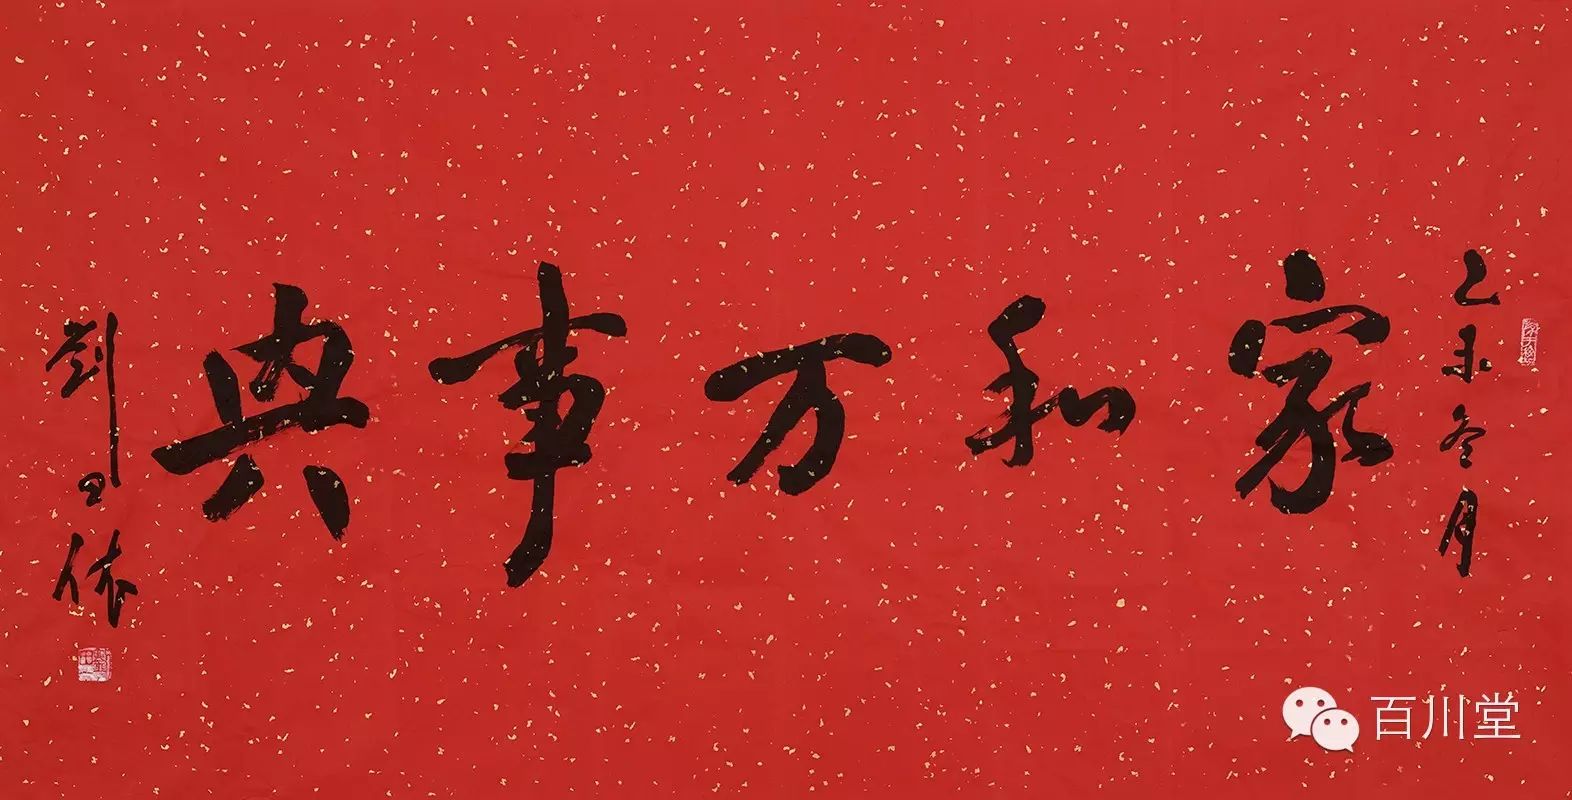 乙未冬月
家和万事興
劉田依
百川堂